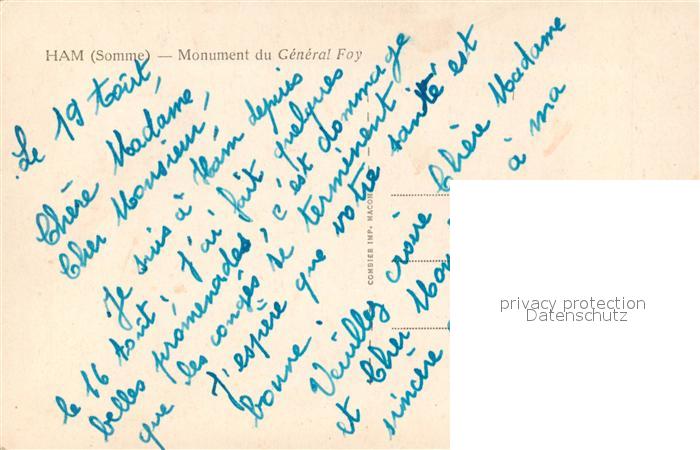 HAM (Somme) — Monument du Général Foy
Le 19 Août,
Chère Madame,
Cher Monsieur,
Je suis à Ham depuis
le 16 Août ; J'ai fait quelques
belles promenades, c'est dommage
que les congés se terminent
J'espère que votre santé est
bonne.
Veuillez croire Chère Madame
et Cher Mon à ma
sincère
COMBIER IMP. MACON
privacy protection
Datenschutz